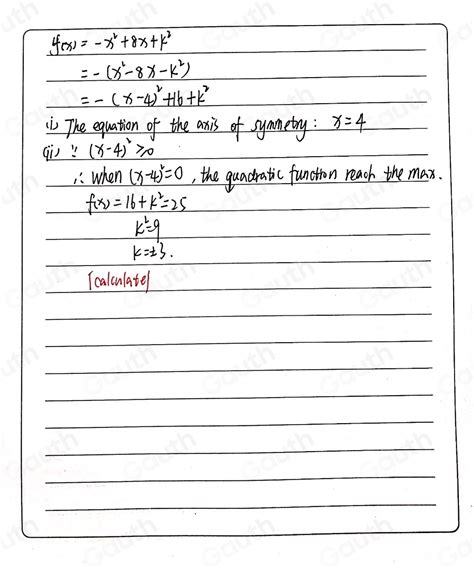 f(x) = -x² + 8x + k²
= -(x² - 8x - k²)
= -(x-4)² + 16 + k²
(i) The equation of the axis of symmetry: x = 4
(ii) ∵ (x-4)² ≥ 0
∴ when (x-4)² = 0, the quadratic function reach the max.
f(x) = 16 + k² = 25
k² = 9
k = ±3.
[calculate]
Gauth